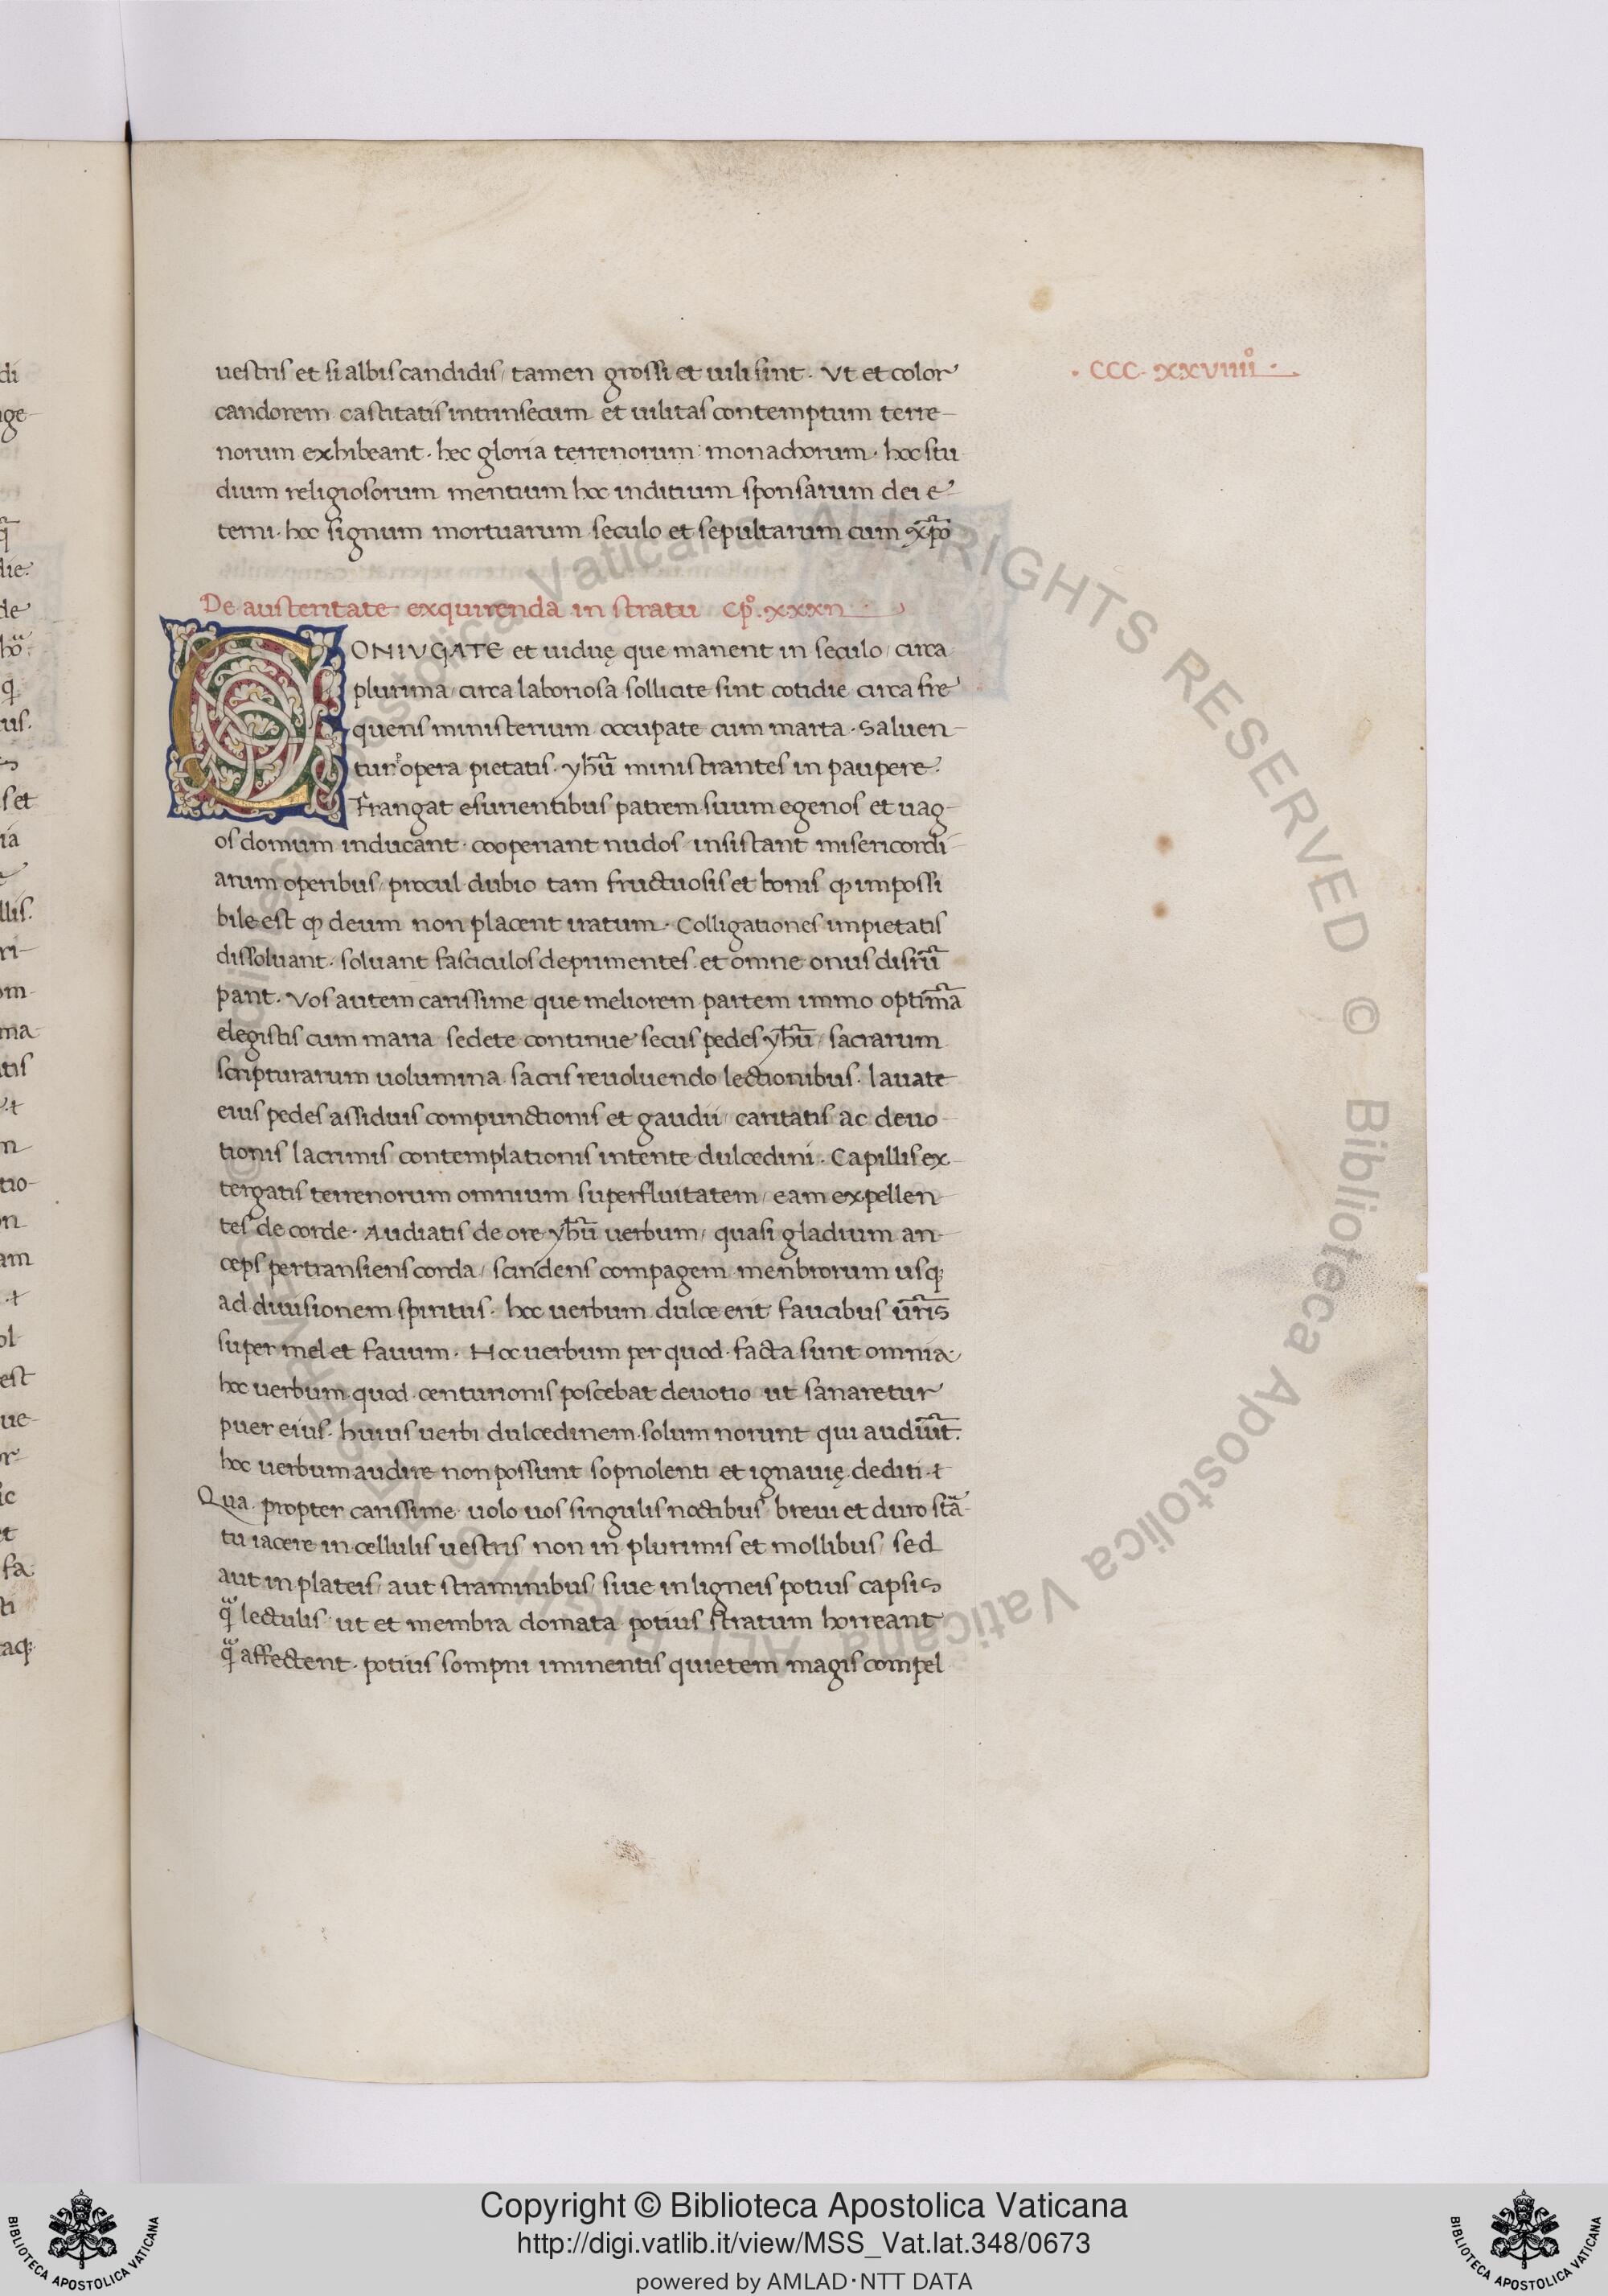 uestris et si albis candidis / tamen grossi et uili sint · Vt et color
· CCC · xxviiii° ·
candorem castitatis intrinsecum et uilitas contemptum terre-
norum exhibeant · hec gloria terrenorum : monachorum · hoc stu
dium religiosorum mentium hoc inditium sponsarum dei e-
terni · hoc signum mortuarum seculo et sepultarum cum xp̄o
De austeritate exquirenda in stratu Cp̊ · xxxii ·
CONIVGATE et uiduę que manent in seculo / circa
plurima / circa laboriosa sollicite sint cotidie circa fre
quens ministerium occupate cum marta · Saluen-
tur opera pietatis · yħū ministrantes in paupere ·
Frangat esurientibus patrem suum egenos et uag-
os domum inducant · cooperiant nudos / insistant misericordi-
arum operibus / procul dubio tam fructuosis et bonis ꝙ impossi
bile est ꝙ deum non placent iratum · Colligationes impietatis
dissoluant · soluant fasciculos deprimentes · et omne onus disrū
pant · Vos autem carissime que meliorem partem immo optimā
elegistis cum maria sedete continue secus pedes yħū / sacrarum
scripturarum uolumina sacris reuoluendo lectionibus · lauate
eius pedes assiduis compunctionis et gaudii / caritatis ac deuo-
tionis lacrimis contemplationis intente dulcedini · Capillis ex-
tergatis terrenorum omnium superfluitatem / eam expellen-
tes de corde · Audiatis de ore yħū uerbum / quasi gladium an-
ceps pertransiens corda / scindens compagem menbrorum usq;
ad diuisionem spiritus · hoc uerbum dulce erit faucibus ūris
super mel et fauum · Hoc uerbum per quod facta sunt omnia
hoc uerbum quod centurionis poscebat deuotio ut sanaretur
puer eius · huius uerbi dulcedinem solum norunt qui audiūt ·
hoc uerbum audire non possunt sopnolenti et ignauię dediti ·
Qua propter carissime uolo uos singulis noctibus breui et duro strā-
tu iacere in cellulis uestris non in plurimis et mollibus / sed
aut in plateis / aut straminibus / siue in ligneis potius capsis
q̄ lectulis ut et membra domata potius stratum horreant
q̄ affectent · potius sompni iminentis quietem magis compel
Copyright © Biblioteca Apostolica Vaticana
http://digi.vatlib.it/view/MSS_Vat.lat.348/0673
powered by AMLAD·NTT DATA
BIBLIOTECA APOSTOLICA VATICANA
BIBLIOTECA APOSTOLICA VATICANA